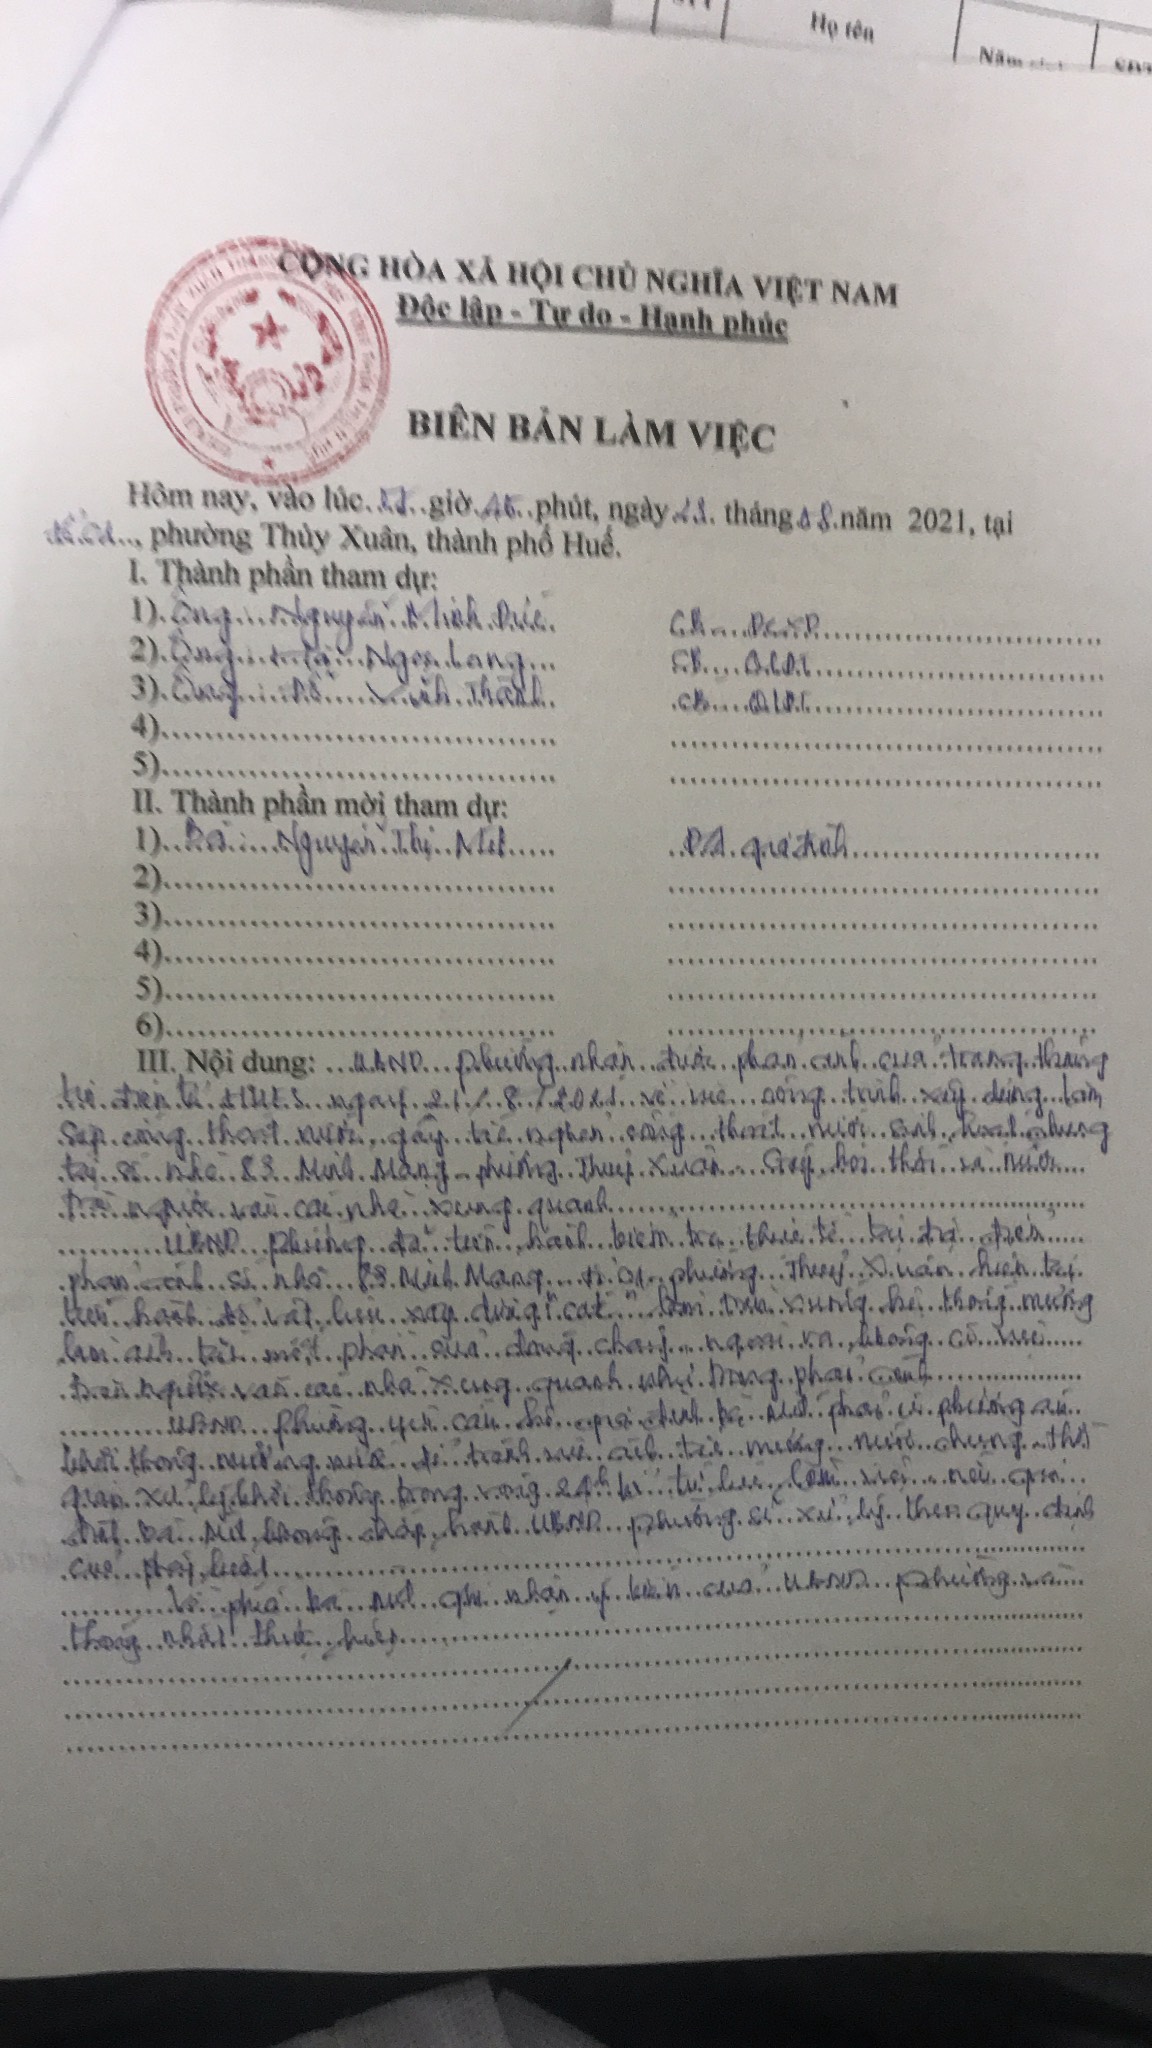 Họ tên
Năm
CỘNG HÒA XÃ HỘI CHỦ NGHĨA VIỆT NAM
Độc lập - Tự do - Hạnh phúc
BIÊN BẢN LÀM VIỆC
Hôm nay, vào lúc giờ phút, ngày 23 tháng 08 năm 2021, tại
, phường Thủy Xuân, thành phố Huế.
I. Thành phần tham dự:
1). Ông : Nguyễn Minh Đức
2). Ông : Ngọc Lang
3). Ông : Đỗ Thành
4)
5)
II. Thành phần mời tham dự:
1) Bà : Nguyễn Thị Mút Đ/d gia đình
2)
3)
4)
5)
6)
III. Nội dung: UBND phường nhận được phản ánh của trang thông
tin điện tử HUES ngày 21/8/2021 về việc công trình xây dựng làm
sập cống thoát nước gây tắc nghẽn cống thoát nước sinh hoạt chung
tại số nhà 83 Minh Mạng - phường Thủy Xuân. Gây hôi thối và nước
tràn ngược vào các nhà xung quanh
UBND phường đã tiến hành kiểm tra thực tế tại địa điểm
phản ánh số nhà 83 Minh Mạng phường Thủy Xuân hiện tại
vật liệu xây dựng "cát" xuống hệ thống mương
làm ách tắc một phần của dòng chảy ngoài ra không có việc
tràn ngược vào các nhà xung quanh như trong phản ánh
UBND phường yêu cầu hộ gia đình bà Mút phải có phương án
khơi thông mương nước để tránh việc ách tắc mương nước chung. thời
gian xử lý khơi thông trong vòng 24h kể từ lúc làm việc. nếu gia
đình bà Mút không chấp hành UBND phường sẽ xử lý theo quy định
của pháp luật
Về phía bà Mút ghi nhận ý kiến của UBND phường và
thống nhất thực hiện